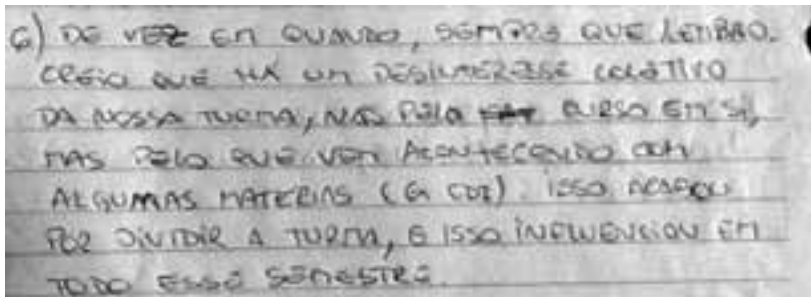 6) DE VEZ EM QUANDO, SEMPRE QUE LEMBRO.
CREIO QUE HÁ UM DESINTERESSE COLETIVO
DA NOSSA TURMA, NÃO PELO CURSO EM SI,
MAS PELO QUE VEM ACONTECENDO COM
ALGUMAS MATÉRIAS (G CDI). ISSO ACABOU
POR DIVIDIR A TURMA, E ISSO INFLUENCIOU EM
TODO ESSE SEMESTRE.